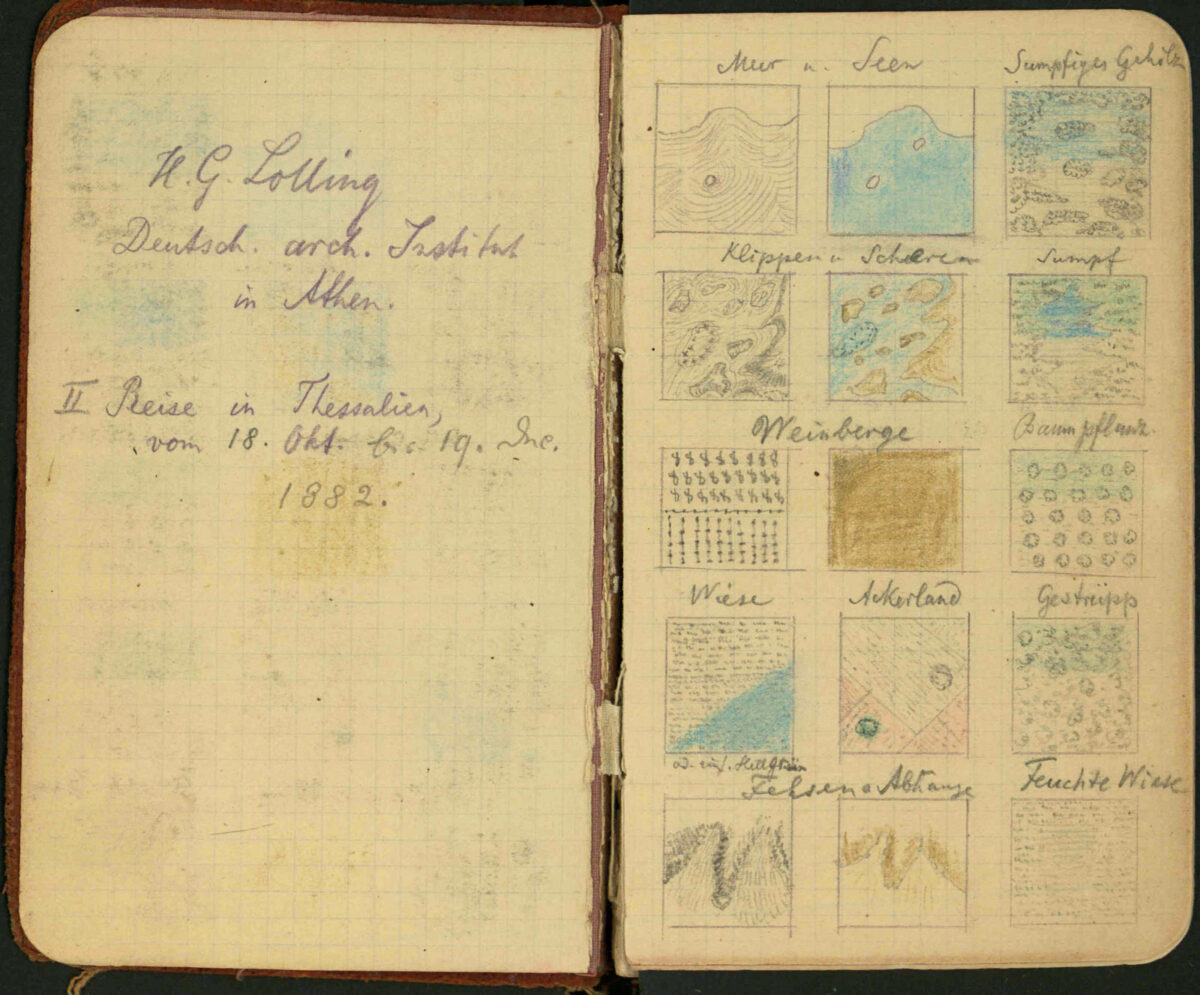 H. G. Lolling
Deutsch. arch. Institut
in Athen.
II Reise in Thessalien,
vom 18. Okt. bis 19. Dec.
1882.
Meer u. Seen
Sumpfiges Gehölz
Klippen u Scheeren
Sumpf
Weinberge
Baumpflanz.
Wiese
Ackerland
Gestrüpp
od. einf. Hellgrün
Felsen u Abhänge
Feuchte Wiese